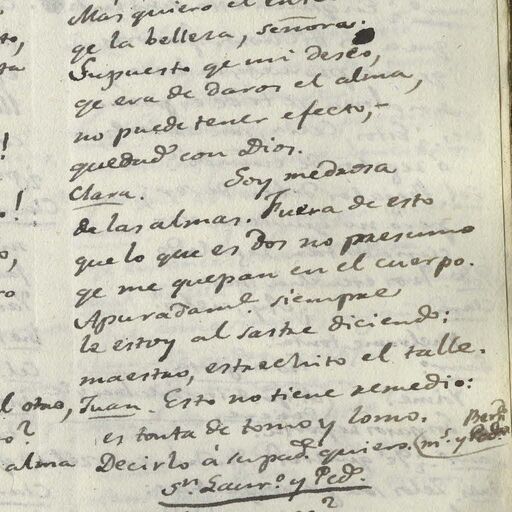 Mas quiero el
qe la belleza, señora.
Supuesto qe mi deseo,
qe era de daros el alma,
no puede tener efecto,
quedad con Dios.
Clara. Soy medrosa
de las almas. Fuera de esto
que lo que es Dos no presumo
qe me quepan en el cuerpo.
Apuradame. siempre
le estoy al sastre diciendo:
maestro, estrechito el talle.
l otro, Juan. Esto no tiene remedio:
o? es tonta de tomo y lomo.
alma Decirlo á su pad.e quiero.
Sn. Laur.o y Ped.o